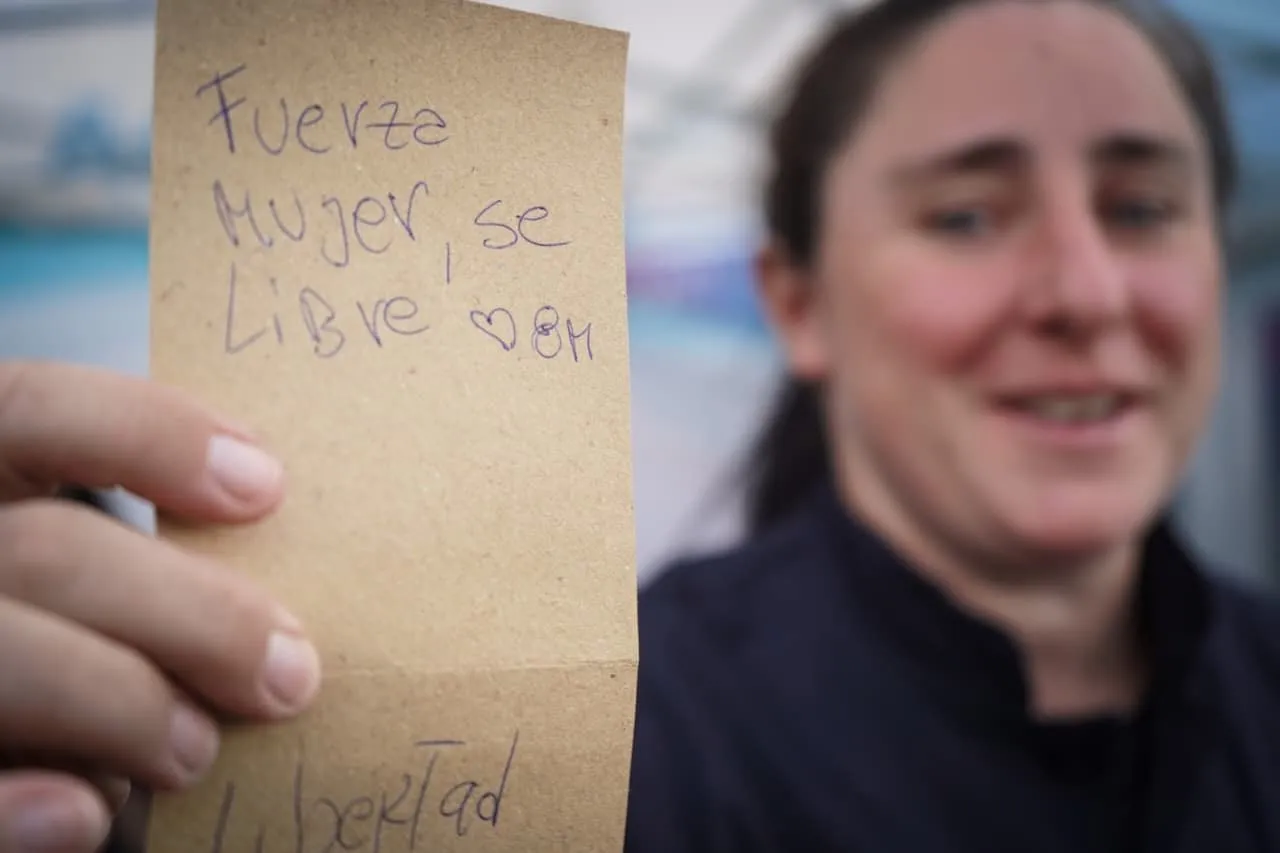 Fuerza
Mujer, se
LiBre ♡ 8M
LiberTad